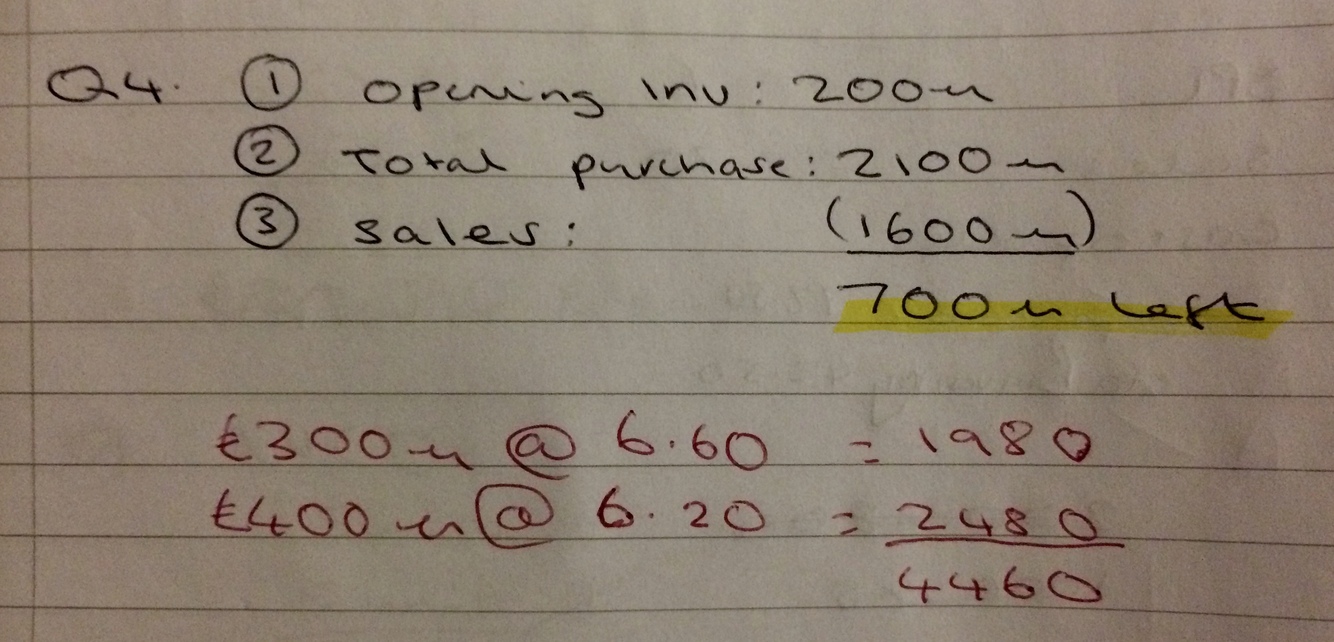 Q4. ① Opening Inv: 200u
② Total purchase: 2100u
③ Sales: (1600u)
700u Left
€300u @ 6.60 = 1980
€400u @ 6.20 = 2480
4460